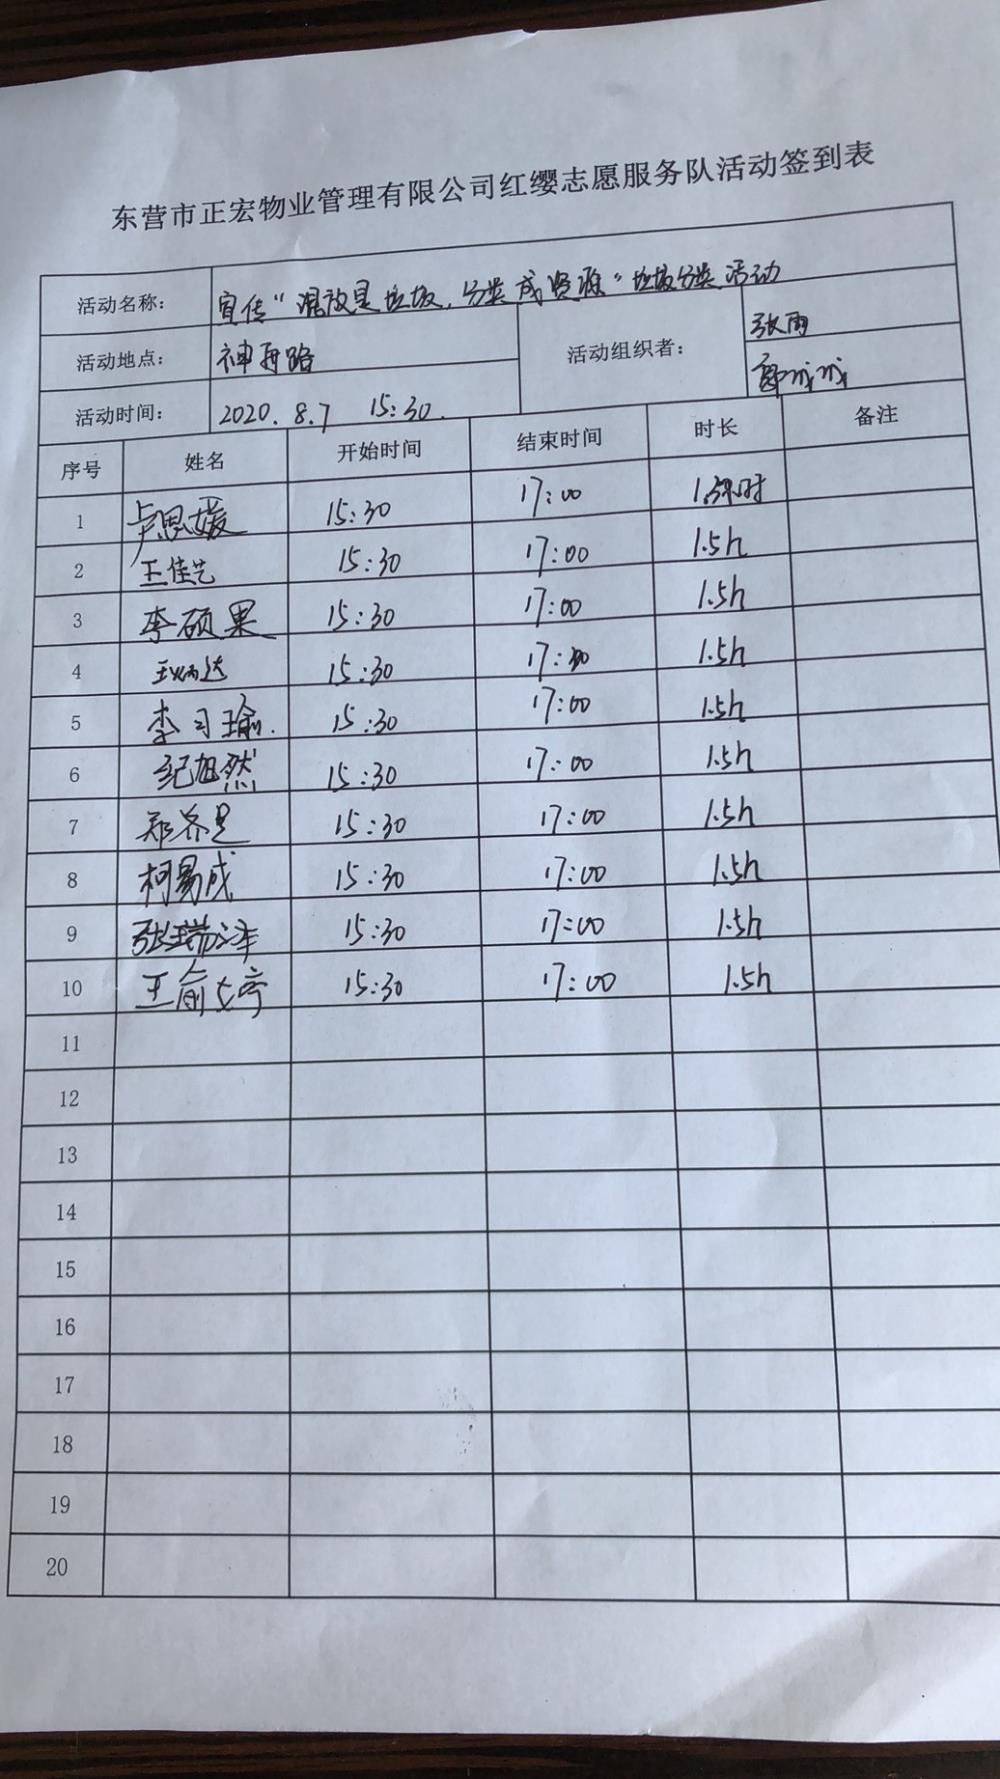 东营市正宏物业管理有限公司红缨志愿服务队活动签到表
活动名称： 宣传“混放是垃圾，分类成资源”垃圾分类活动
活动地点： 神舟路 活动组织者： 张雨
郭城城
活动时间： 2020.8.7 15:30.
序号 姓名 开始时间 结束时间 时长 备注
1 卢思媛 15:30 17:00 1.5小时
2 王佳艺 15:30 17:00 1.5h
3 李硕果 15:30 17:00 1.5h
4 王炳达 15:30 17:00 1.5h
5 李习瑜. 15:30 17:00 1.5h
6 纪旭然 15:30 17:00 1.5h
7 郑 15:30 17:00 1.5h
8 柯易成 15:30 17:00 1.5h
9 张瑞泽 15:30 17:00 1.5h
10 王俞文婷 15:30 17:00 1.5h
11
12
13
14
15
16
17
18
19
20